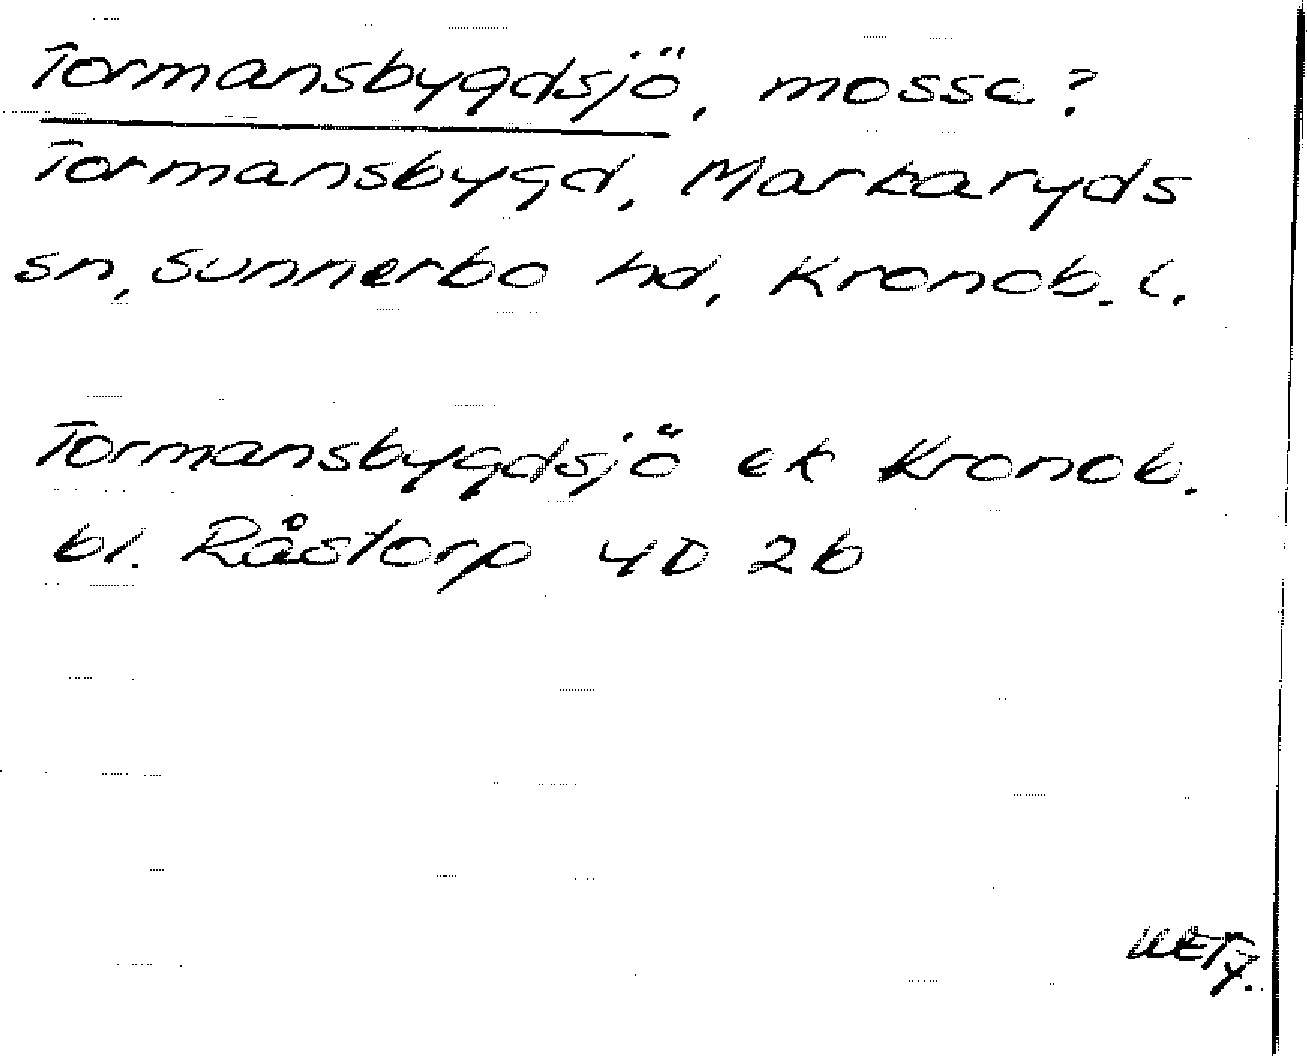 Tormansbygdsjö, mosse?
Tormansbygd, Markaryds
sn, Sunnerbo hd, Kronob. l.
Tormansbygdsjö ek Kronob.
bl. Råstorp 4D 2b